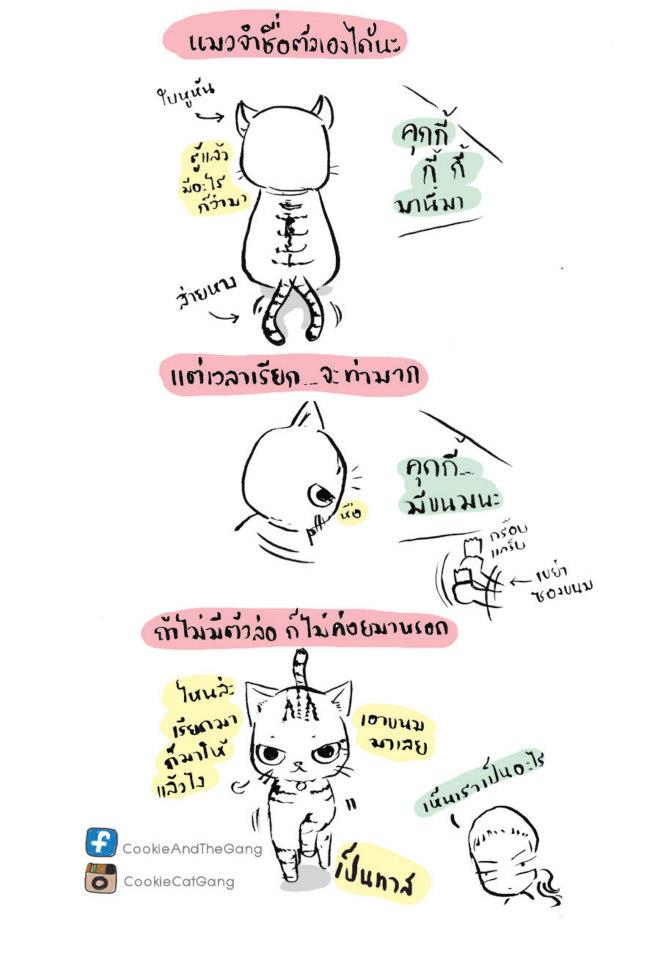 แมวจำชื่อตัวเองได้นะ
ใบหูหัน
รู้แล้ว
มีอะไร
ก็ว่ามา
คุกกี้
กี้ กี้
มานี่มา
ส่ายหาง
แต่เวลาเรียก...จะท่ามาก
คุกกี้...
มีขนมนะ
หือ
กร๊อบ
แกร๊บ
เขย่า
ซองขนม
ถ้าไม่มีตัวล่อ ก็ไม่ค่อยมาหรอก
ไหนล่ะ
เรียกมา
ก็มาให้
แล้วไง
เอาขนม
มาเลย
เห็นเราเป็นอะไร
เป็นทาส
CookieAndTheGang
CookieCatGang